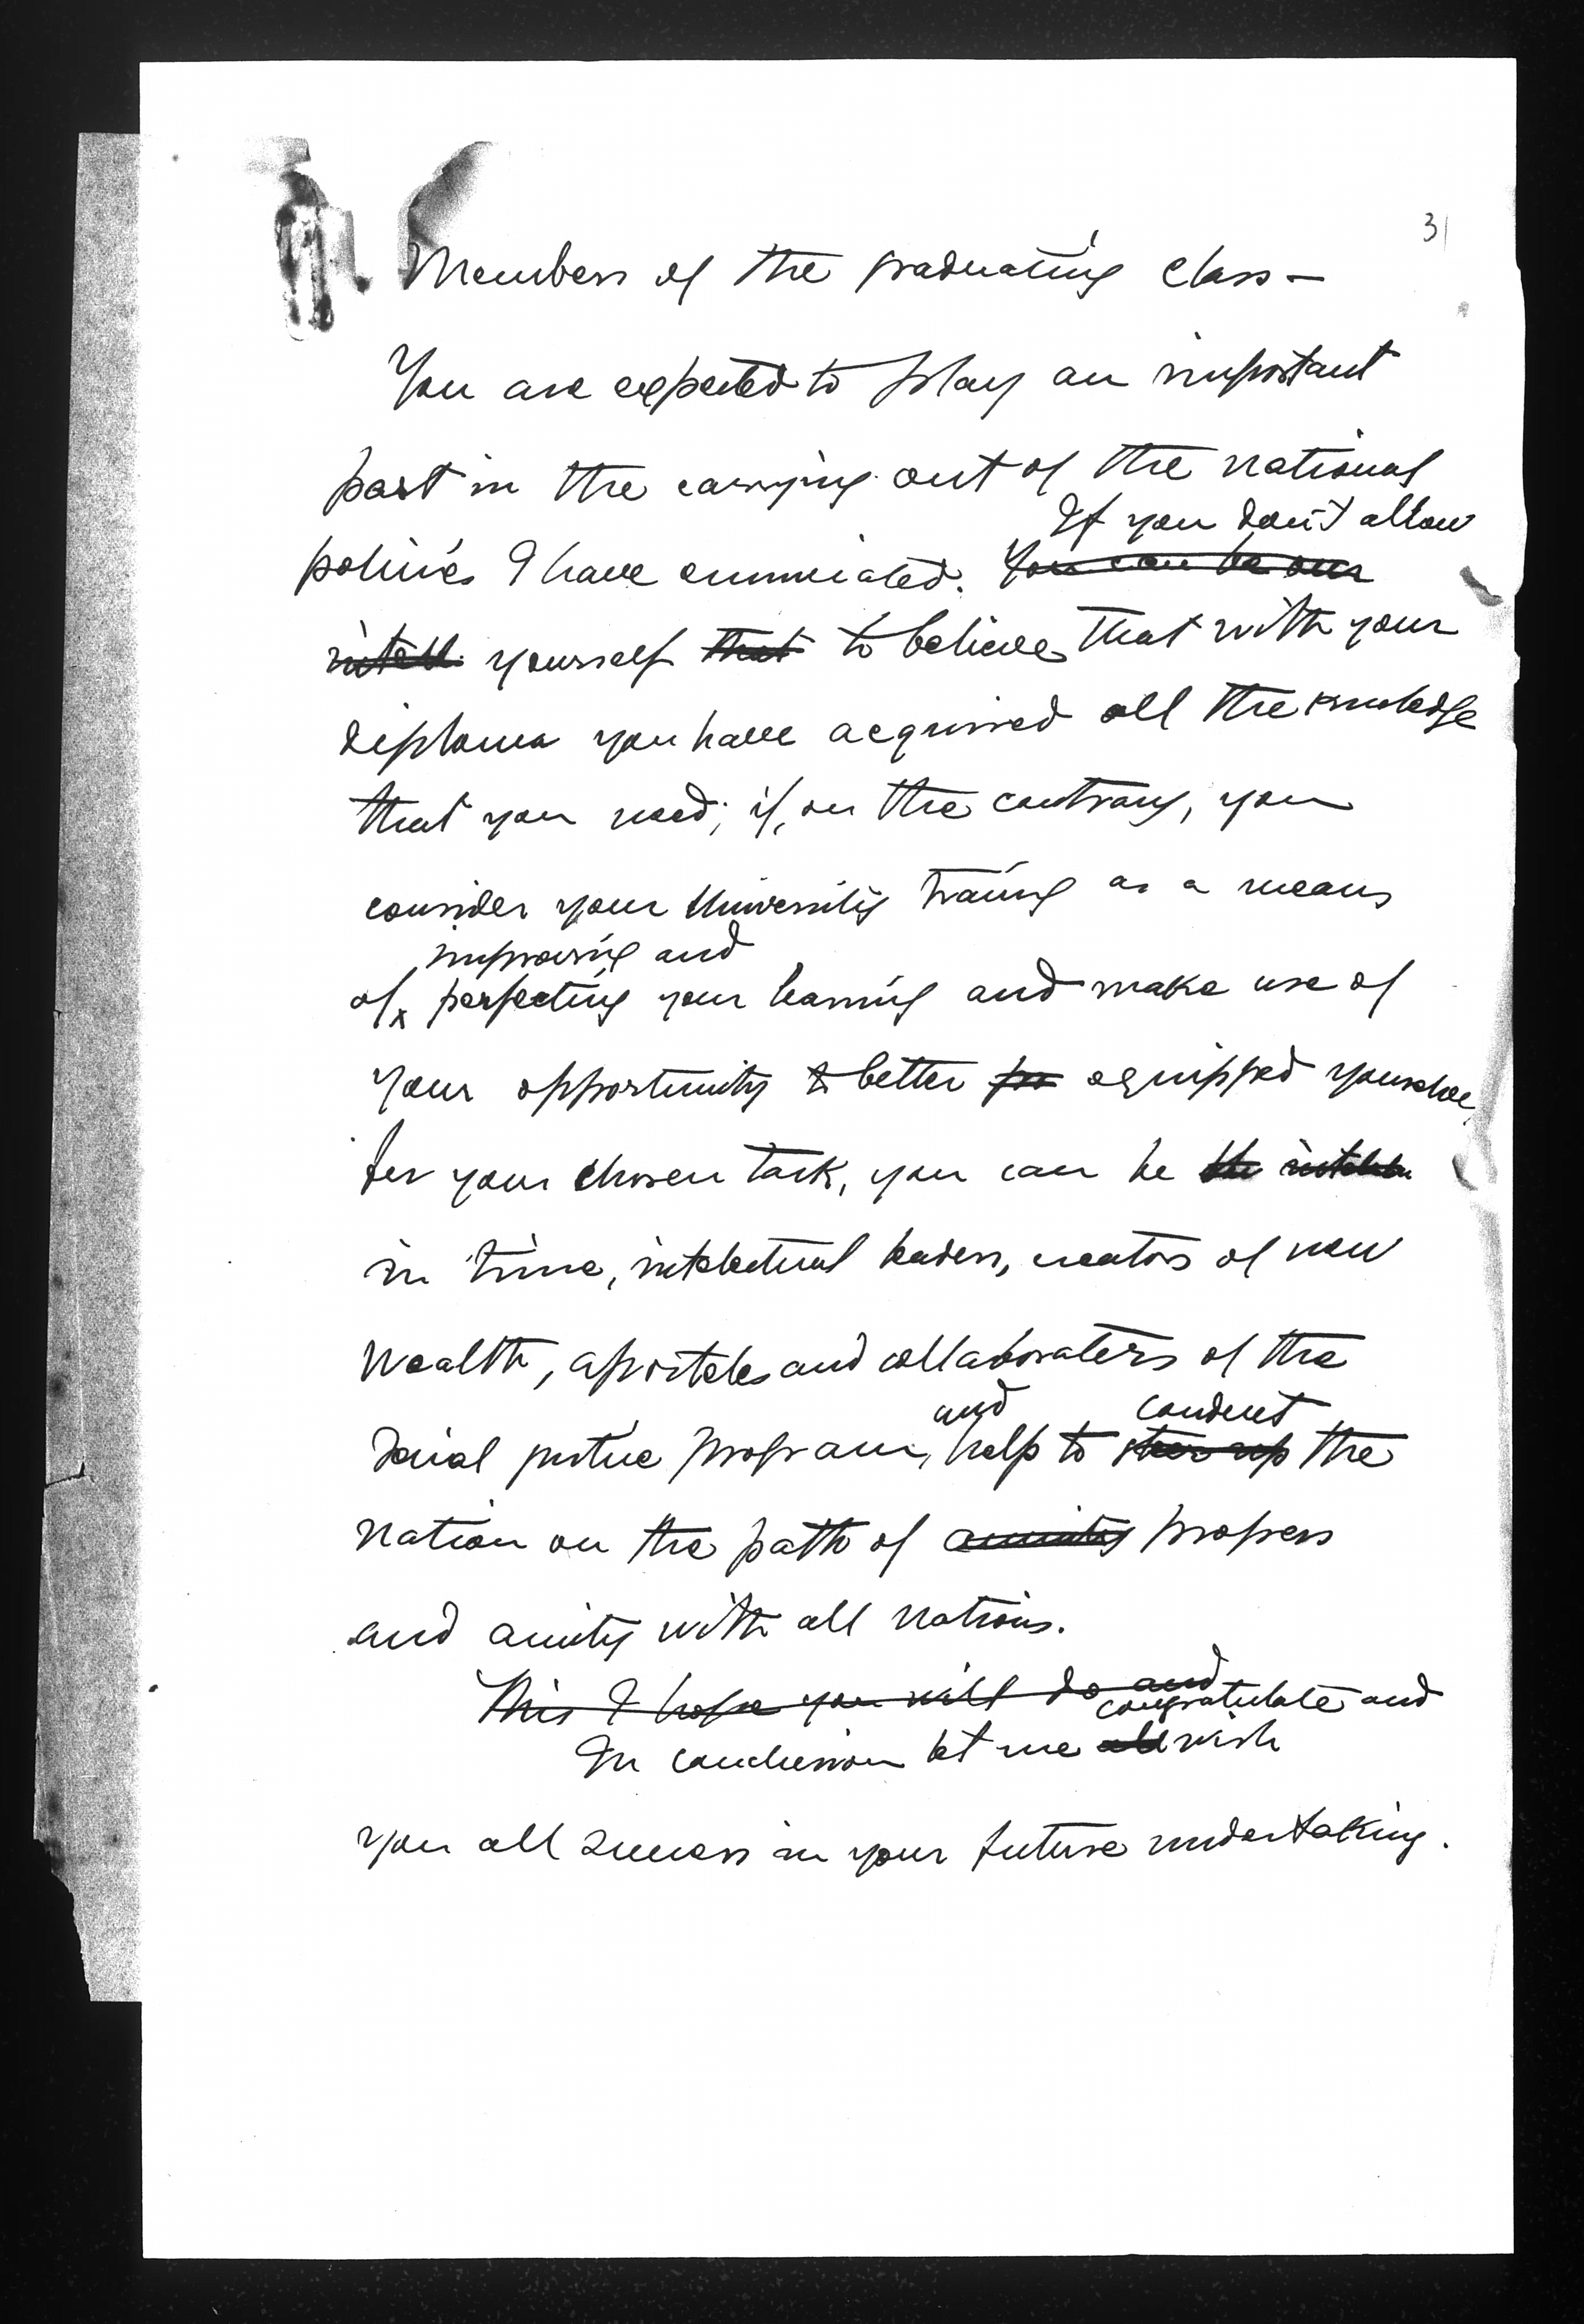 31
Members of the graduating class —
You are expected to play an important
part in the carrying out of the national
If you don't allow
policies I have enunciated. You can be our
intell. yourself that to believe that with your
diploma you have acquired all the knowledge
that you need; if, on the contrary, you
consider your University training as a means
improving and
of x perfecting your learning and make use of
your opportunity to better for equipped yourselve
for your chosen task, you can be the
in time, intelectual leaders, creators of new
wealth, aposteles and collaboraters of the
and conduct
Social justice program, help to steer up the
nation on the path of amity progress
and amity with all nations.
This I hope you will do and
congratulate and
In conclusion let me all wish
you all success in your future undertaking.